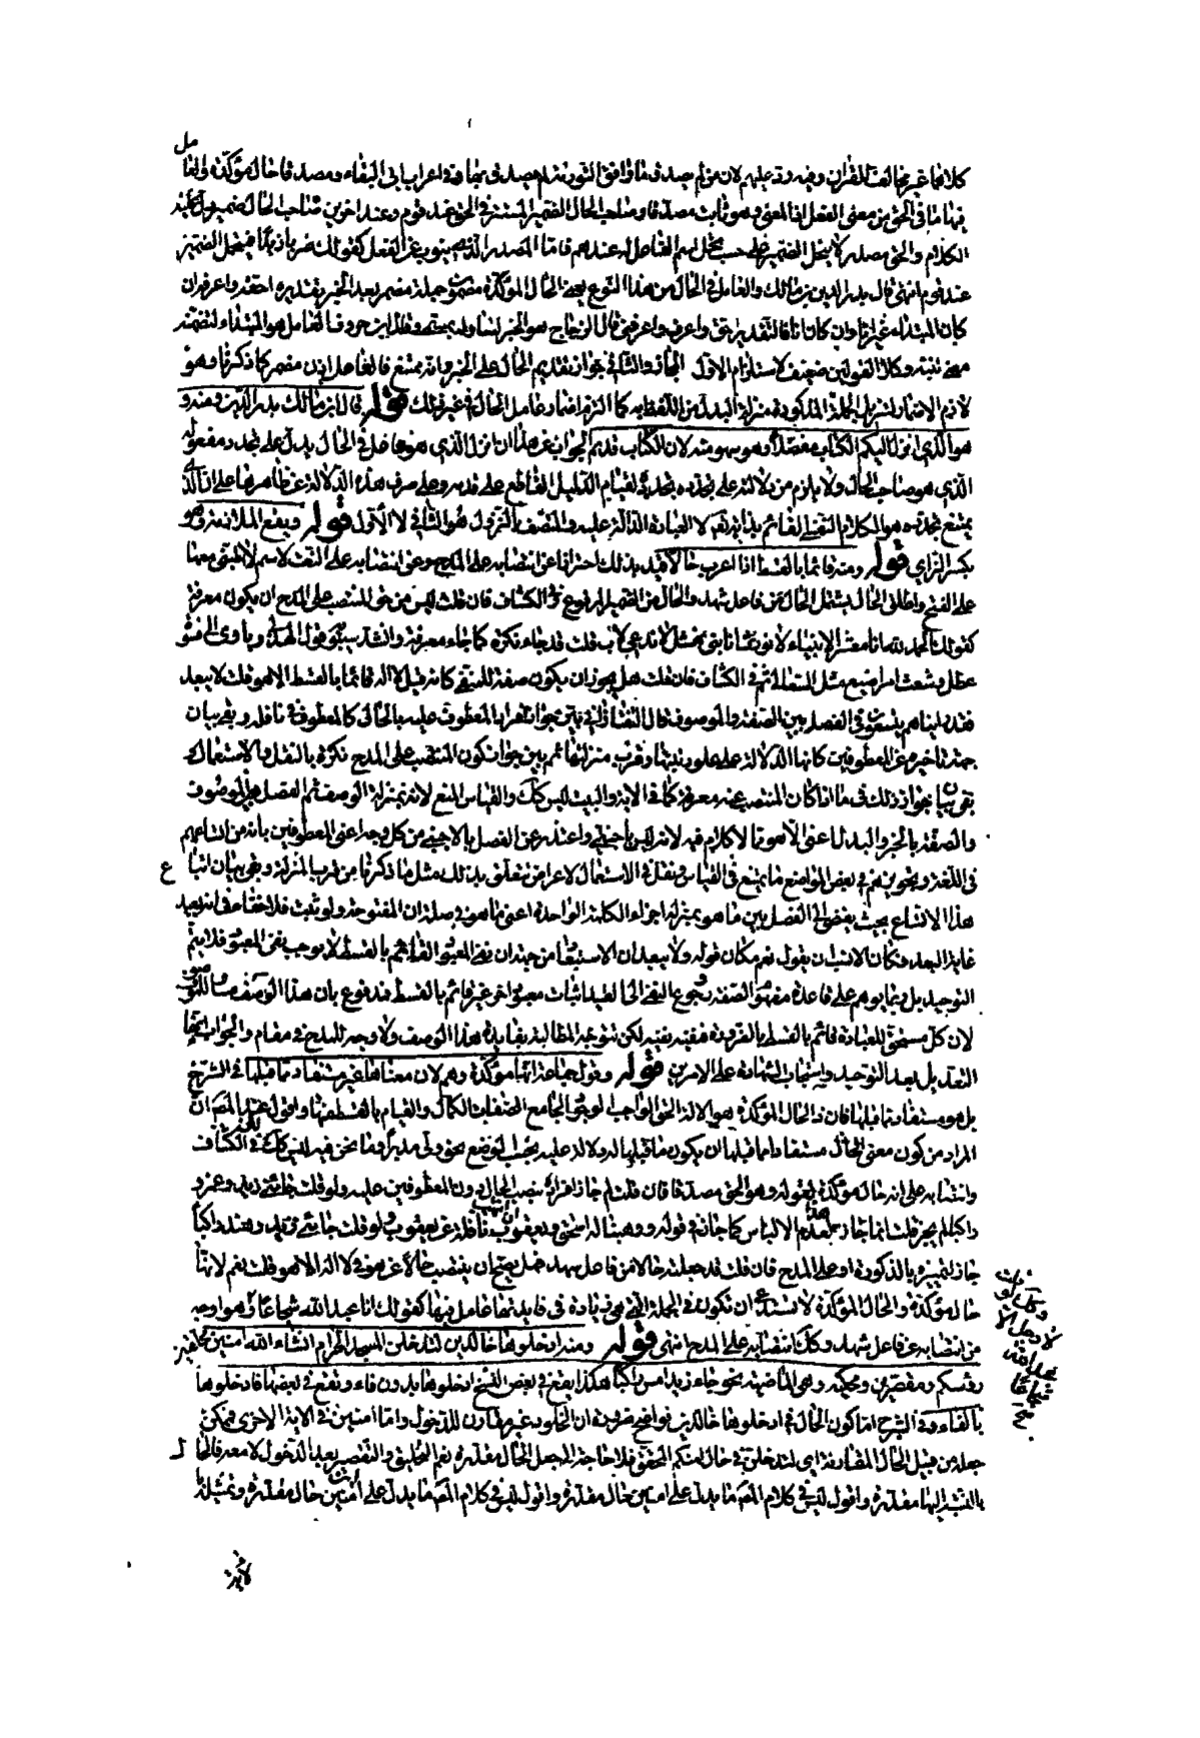 كلاهما غير مخالف للقرآن وفيه رد عليهم لان من لم يصدق ما وافق التوراة لم يصدق بها وفي اعراب ابي البقاء ومصدقا حال مؤكدة والعامل
فيها ما في الحق من معنى الفعل اذ المعنى وهو ثابت مصدقا وصاحب الحال الضمير المستتر في الحق عند قوم وعند اخرين صاحب الحال ضمير دل عليه
الكلام والحق مصدر لا يتحمل الضمير على حسب تحمل اسم الفاعل له عندهم فاما المصدر الذي ينوب عن الفعل كقولك ضربا زيدا فيتحمل الضمير
عند قوم انتهى قال بدر الدين بن مالك والعامل في الحال من هذا النوع يعني الحال المؤكدة مضمون جملة مضمر بعد الخبر تقديره احقه واعرفه ان
كان المبتدا غير انا وان كان انا فالتقدير احق واعرف واعرفني قال الزجاج هو الخبر لتاوله بمسمى وقال ابن خروف العامل هو المبتداء لتضمنه
معنى تنبه وكلا القولين ضعيف لاستلزام الاول المجاز والثاني جواز تقديم الحال على الخبر وانه ممتنع فالعامل اذن مضمر كما ذكرنا وهو
لازم الاضمار لتنزيل الجملة المذكورة منزلة البدل من اللفظ به كما التزم اضمار عامل الحال في غير ذلك قوله قال ابن مالك بدر الدين ومنه و
هو الذي انزل اليكم الكتاب مفصلا وهو سهو منه لان الكتاب قديم الجواب عن هذا ان انزل الذي هو عامل في الحال يدل على تجدد مفعوله
الذي هو صاحب الحال ولا يلزم من دلالته على تجدده تجدده لقيام الدليل القاطع على قدمه وعلى صرف هذه الدلالة عن ظاهرها على ان الذي
يمتنع تجدده هو الكلام النفسي القائم بذاته تعالى لا العبارة الدالة عليه والمتصف بالنزول هو الثاني لا الاول قوله ويقع الملازمة وهو
بكسر الزاي قوله ومنه قائما بالقسط اذا اعرب حالا قيد بذلك احترازا عن انتصابه على المدح وعن انتصابه على النعت لاسم لا المبني معها
على الفتح واطلق الحال ليشمل الحال من فاعل شهد والحال من الضمير المرفوع في الكشاف فان قلت ليس من حق المنتصب على المدح ان يكون معرفة
كقولك الحمد لله انا معشر الانبياء لا نورث انا بني نهشل لا ندعي لاب قلت قد جاء نكرة كما جاء معرفة وانشد سيبويه قول الهذلي وياوي الى نسوة
عطل وشعث مراضيع مثل السعالي ثم في الكشاف فان قلت هل يجوز ان يكون صفة للمنفي كانه قيل لا اله قائما بالقسط الا هو قلت لا يبعد
فقد رايناهم يتسعون في الفصل بين الصفة والموصوف قال التفتازاني بين جواز انفراد المعطوف عليه بالحال كالمعطوف في نافلة وبقي بيان
جهة تاخيره عن المعطوفين كانها الدلالة على علو رتبتهما وقرب منزلتهما ثم بين جواز كون المنتصب على المدح نكرة بالنقل والاستعمال و
بقي بيان جواز ذلك في ما اذا كان المنتصب عنه معرفة كما في الاية والبيت ليس كذلك والقياس المنع لانه بمنزلة الوصف ثم الفصل بين الموصوف
والصفة بالخبر والبدل اعني الا هو مما لا كلام فيه لانه ليس باجنبي واعتذر عن الفصل بالاجنبي من كل وجه اعني المعطوفين بانه من اتساعهم
في اللغة وتجويزهم في بعض المواضع ما يمتنع في القياس وتقل في الاستعمال لاغراض تتعلق بذلك مثل ما ذكرنا من قرب المنزلة وبقي بيان اتباع
هذا الاتساع بحيث يفضي الى الفصل بين ما هو بمنزلة اجزاء الكلمة الواحدة اعني ما هو في صلة ان المفتوحة ولو ثبت فلا خفاء في انه بعيد
غاية البعد وكان الانسب ان يقول نعم مكان قوله ولا يبعد ان الاستبعاد من جهة ان نفي المعبود القائم بالقسط لا يوجب نفي المعبود فلا يتم
التوحيد بل ربما يوهم على قاعدة مفهوم الصفة رجوع النفي الى القيد اثبات معبود اخر غير قائم بالقسط مدفوع بان هذا الوصف مساو للموصوف
لان كل مستحق للعبادة قائم بالقسط بالضرورة فنفيه نفيه لكن يتوجه المطالبة بفائدة هذا الوصف ولا وجه للمدح في مقام والجواب انها
التعديل بعد التوحيد وانسحاب الشهادة على الامرين قوله وقول جماعة انها مؤكدة وهم لان معناها غير مستفاد مما قبلها في الشرح
بل هو مستفاد مما قبلها فان ذا الحال المؤكدة هو الاله الحق الواجب الوجود الجامع لصفات الكمال والقيام بالقسط منها واقول عند المصنف ان
المراد من كون معنى الحال مستفادا مما قبلها ان يكون ما قبلها له دلالة عليه بحسب الوضع نحو ولى مدبرا وما نحن فيه ليس كذلك وفي الكشاف
وانتصابه على انه حال مؤكدة كقوله وهو الحق مصدقا فان قلت لم جاز افراده بنصب الحال دون المعطوفين عليه ولو قلت جاءني زيد وعمرو
راكبا لم يجز قلت انما جاز هذا لعدم الالباس كما جاز في قوله ووهبنا له اسحق ويعقوب نافلة ان انتصب نافلة عن يعقوب ولو قلت جاءني زيد وهند راكبا
جاز لتميزه بالذكورة او على المدح فان قلت قد جعلته حالا من فاعل شهد فهل يصح ان ينتصب حالا عن هو في لا اله الا هو قلت نعم لانها
حال مؤكدة والحال المؤكدة لا تستدعي ان تكون في الجملة التي هي زيادة في فائدتها عامل فيها كقولك انا عبد الله شجاعا وهو اوجه
من انتصابه عن فاعل شهد وكذلك انتصابه على المدح انتهى قوله ومنه ادخلوها خالدين لتدخلن المسجد الحرام انشاء الله امنين محلقين
رؤسكم ومقصرين ومحكية وهي الماضية نحو جاء زيد امس راكبا هكذا يقع في بعض النسخ ادخلوها بدون فاء ويقع في بعضها فادخلوها
بالفاء وفي الشرح اما كون الحال في ادخلوها خالدين فواضح ضرورة ان الخلود غير مقارن للدخول واما امنين في الاية الاخرى فيمكن
جعله من قبيل الحال المقارنة اي لتدخلن في حال امنكم المحقق فلا حاجة الى جعل الحال مقدرة نعم الحلق والتقصير بعد الدخول لا معه فالحال
بالنسبة اليها مقدرة واقول ليس في كلام المصنف ما يدل على امنين حال مقدرة واقول ليس في كلام المصنف ما يدل على ان امنين حال مقدرة وتمثيله